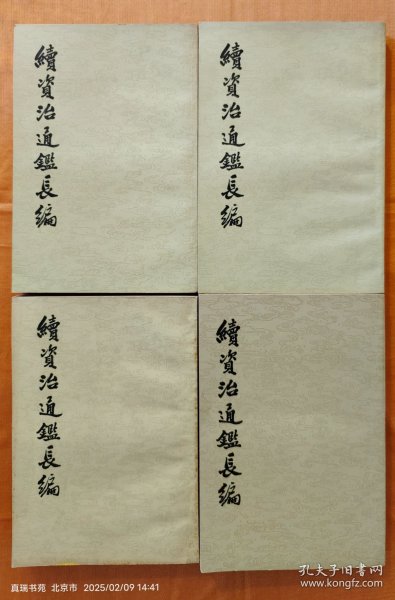 續資治通鑑長編
續資治通鑑長編
續資治通鑑長編
續資治通鑑長編
真瑞书苑 北京市 2025/02/09 14:41
孔夫子旧书网
www.kongfz.com